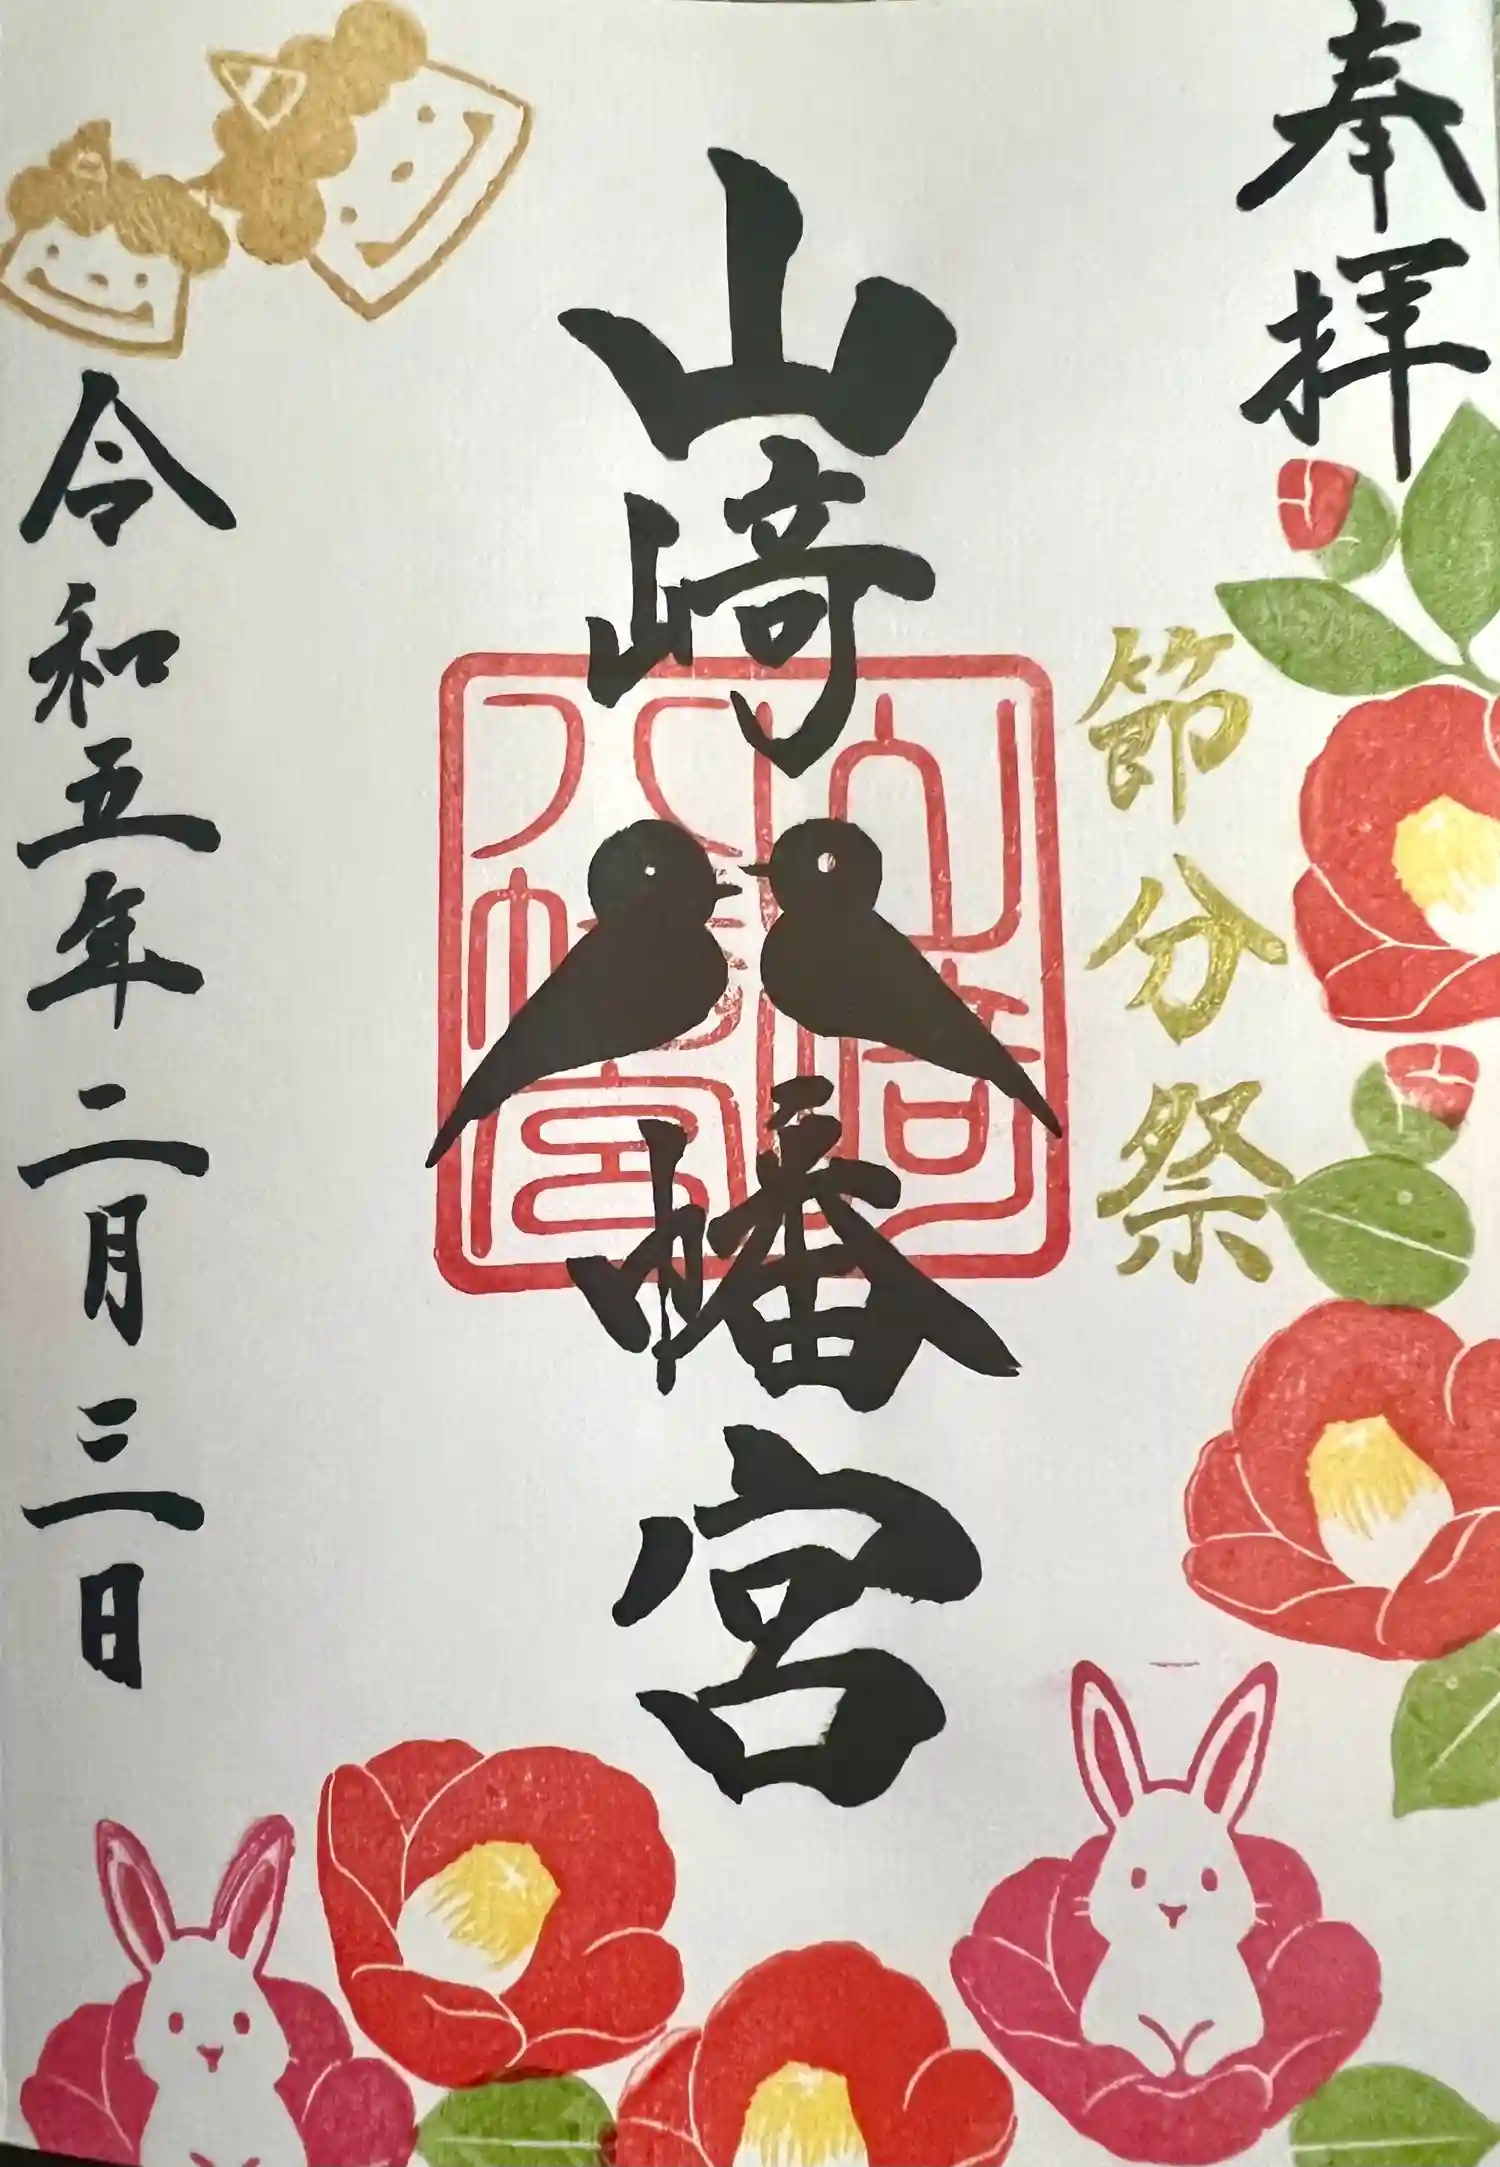 奉拝
節分祭
山崎八幡宮
山崎八幡宮
令和五年二月三日